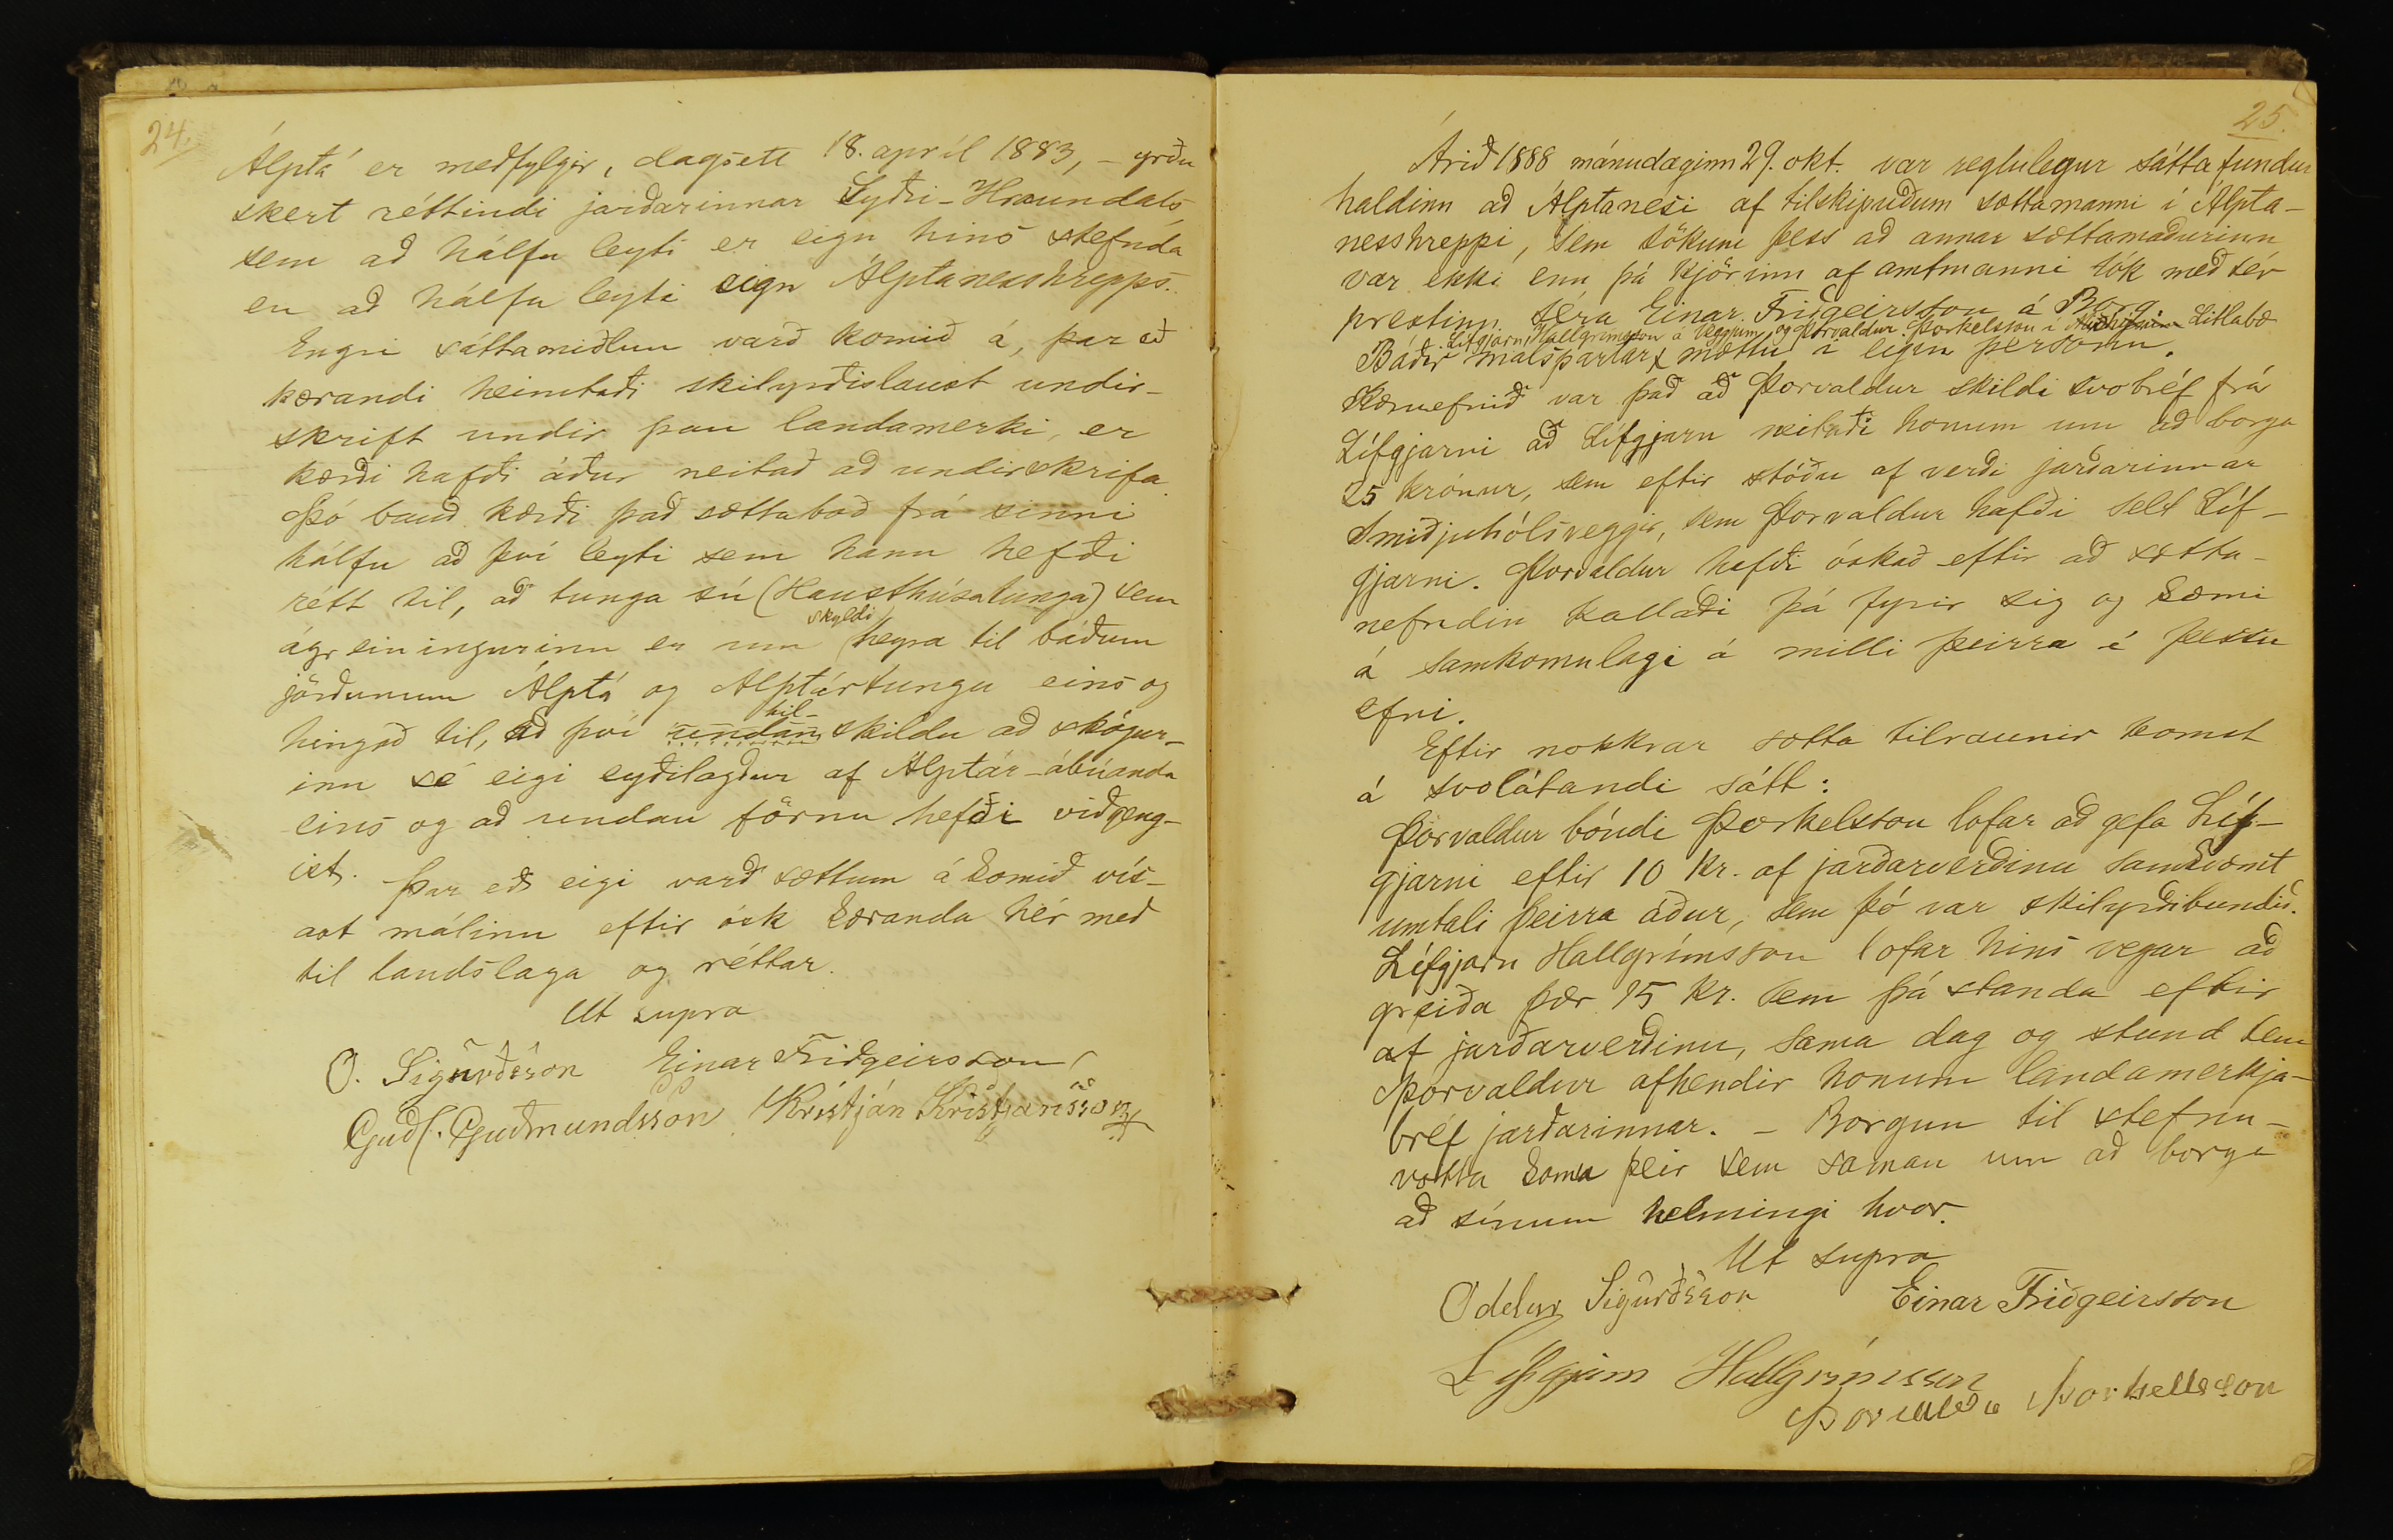 24.
Álptá er meðfylgir, dagsett 18. apríl 1883, – yrðu
skert réttindi jarðarinnar Syðri-Hraundals
sem að hálfu leyti er eign hins stefnda
en að hálfu leyti eign Álptanesshrepps.
Engri sáttamiðlun varð komið á, þar eð
kærandi heimtaði skilyrðislaust undir-
skrift undir þau landamerki, er
kærði hafði áður neitað að undirskrifa.
Þó bauð kærði það sættaboð frá sinni
hálfu að því leyti sem hann hefði
rétt til, að tunga sú (Hausthúsatunga) sem
ágreiningurinn er um skyldi heyra til báðum
jörðunum Álptá og Álptártungu eins og
hingað til, að því undan til- skildu að skógur-
inn sé eigi eyðilagður af Álptár-ábúanda
eins og að undan förnu hefði viðgeng-
ist. Þar eð eigi varð sættum á komið vís-
ast málinu eftir ósk kæranda hér með
til landslaga og réttar.
Ut supra
O. Sigurðsson Einar Friðgeirsson
Guðl. Guðmundsson Kristján Kristjánsson
25.
Árið 1888 mánudaginn 29. okt. var reglulegur sáttafundur
haldinn að Álptanesi af tilskipuðum sættamanni í Álpta-
nesshreppi, sem sökum þess að annar sættamaðurinn
var ekki enn þá kjörinn af amtmanni tók með sér
prestinn séra Einar Friðgeirsson á Borg.
Lífgjarn Hallgrímsson á Veggjum og Þorvaldur Þorkelsson í Litlabæ
Báðir málspartar mættu í eigin persónu.
Kæruefnið var það að Þorvaldur skildi svo bréf frá
Lífgjarni að Lífgjarn neitaði honum um að borga
25 krónur, sem eftir stóðu af verði jarðarinnar
Smiðjuhólsveggir, sem Þorvaldur hafði selt Líf-
gjarni. Þorvaldur hafði óskað eftir að sætta-
nefndin kallaði þá fyrir sig og kæmi
á samkomulagi á milli þeirra í þessu
efni.
Eftir nokkrar sátta tilraunir komst
á svolátandi sátt:
Þorvaldur bóndi Þorkelsson lofar að gefa Líf-
gjarni eftir 10 kr. af jarðarverðinu samkvæmt
umtali þeirra áður, sem þó var skilyrðibundið.
Lífgjarn Hallgrímsson lofar hins vegar að
greiða þær 15 kr. sem þá standa eftir
af jarðarverðinu, sama dag og stund sem
Þorvaldur afhendir honum landamerkja-
bréf jarðarinnar. – Borgun til stefnu-
votta koma þeir sem saman um að borga
að sínum helmingi hvor.
Ut supra
Oddur Sigurðsson Einar Friðgeirsson
Lífgjarn Hallgrímsson
Þorvaldu Þorkellsson